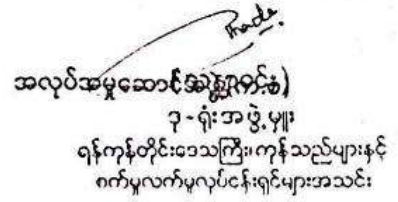 အလုပ်အမှုဆောင်
ဒု-ရုံးအဖွဲ့မှူး
ရန်ကုန်တိုင်းဒေသကြီး၊ကုန်သည်များနှင့်
စက်မှုလက်မှုလုပ်ငန်းရှင်များအသင်း